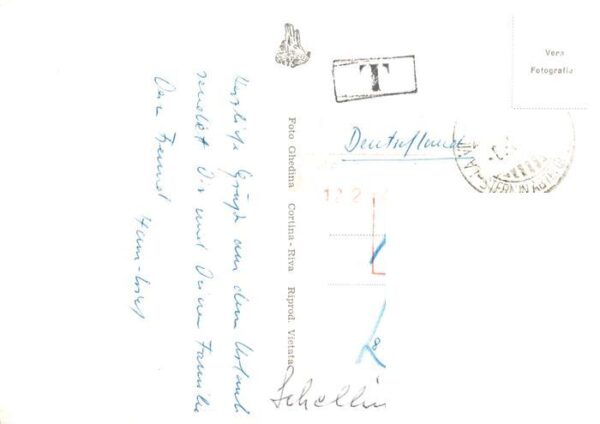 Herzliche Grüße aus dem Urlaub
sendet Dir und Deiner Familie
Dein Freund
Foto Ghedina Cortina - Riva Riprod. Vietata
T
Vera
Fotografia
Deutschland
12 2
Schellin